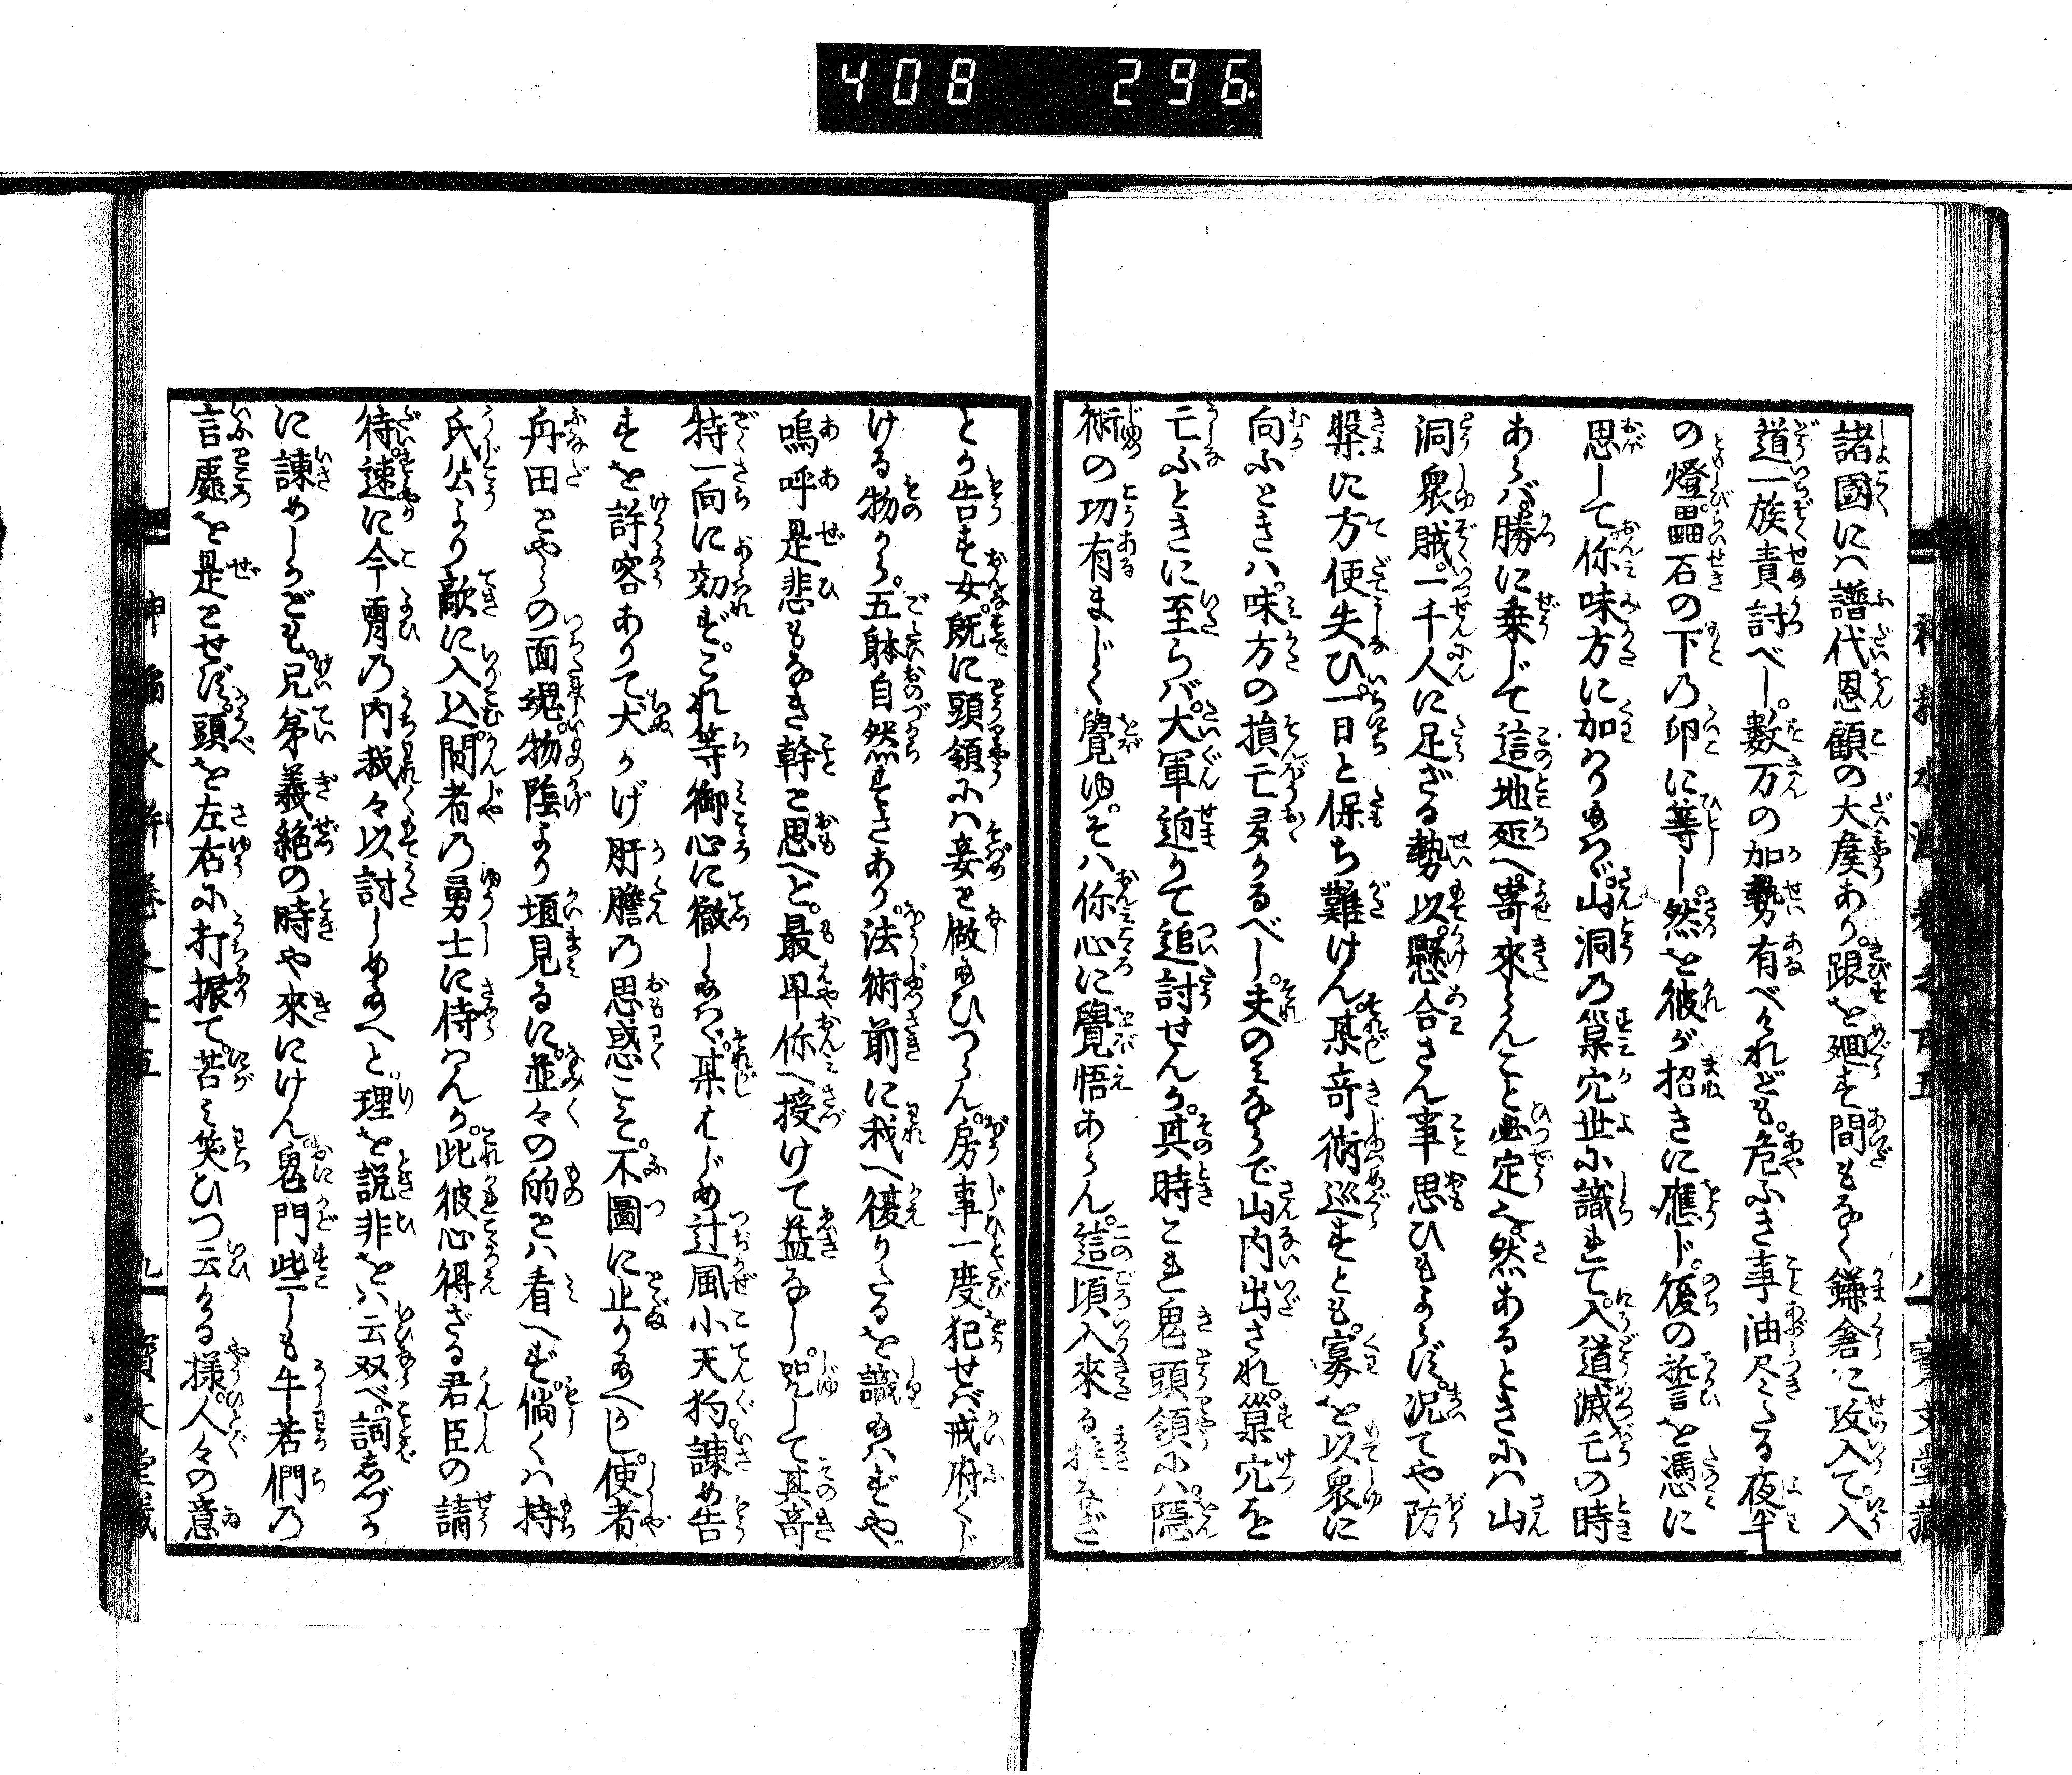 408 296
諸國にハ譜代恩顧の大矦あり。踉を廻らす間もなく鎌倉に攻入て。入
道一族責討べし。數万の加勢有べけれども。危ふき事油尽たる夜半
の燈。畾石の下の卵に等し。然を彼が招きに應じ。後の誓を憑に
思して。你味方に加ハり給ハヾ。山洞の巢穴世に識れて。入道滅亡の時
あらバ。勝に乗じて這地処へ。寄來らんこと必定也。然あるときにハ山
洞衆賊。一千人に足ざる勢以。懸合さん事思ひもよらず。况てや防
禦に方便失ひ。一日と保ち難けん。某竒術巡すとも。寡を以衆に
向ふときハ。味方の損亡多かるべし。夫のみならで山内出され。巢穴を
亡ふときに至らバ。大軍迫りて追討せんが。其時これ鬼頭領ハ隱
術の功有まじく覺ゆ。そハ你心に覺悟あらん。這頃入來る
とか告す女。既に頭領にハ妾と做給ひつらん。房事一度犯せバ戒府くじ
ける物から。五躰自然すきあり。法術前に我へ復りたるを識給ハずや。
嗚呼是悲もなき幹と思へど。最早你へ授けて益なし。咒して其竒
特一向に効ず。これ等御心に徹し給ハヾ。某はじめ辻風小天狗諫め告
すを許容ありて。犬かげ肝膽の思惑こそ。不圖に止り給へかし。使者
舟田とやらの面魂。物陰より垣見るに。並々の的とハ看へず。倘くハ持
氏公より敵に入込。間者の勇士に侍ハんか。此彼心得ざる君臣の請
待。速に今宵の内。我々以討しめ給へと。理を説非をハ云双べ。詞しづか
に諫めしかども。兄弟義絶の時や來にけん。鬼門些しも牛若們の
言處を是とせず。頭を左右に打振て。苦み笑ひつ云ける樣。人々の意
八 寶文堂藏
九 寶文堂藏